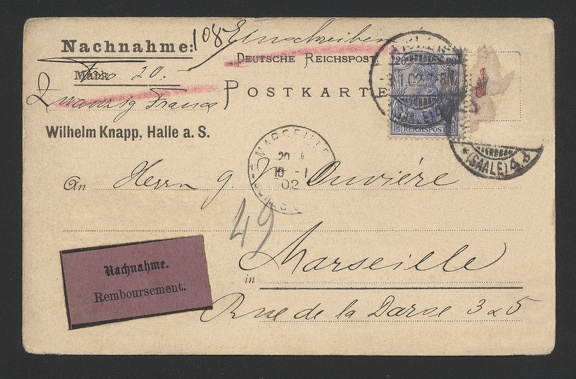 Nachnahme:
108 Einschreiben
DEUTSCHE REICHSPOST
Mark
Frs 20.
POSTKARTE
zwanzig Francs
Wilhelm Knapp, Halle a. S.
20 20
REICHSPOST
(SAALE)
MARSEILLE
10 -1
02
(SAALE)
An Herrn g. Ouvière
49
in Marseille
Rue de la Darse 3 & 5
Nachnahme.
Remboursement.